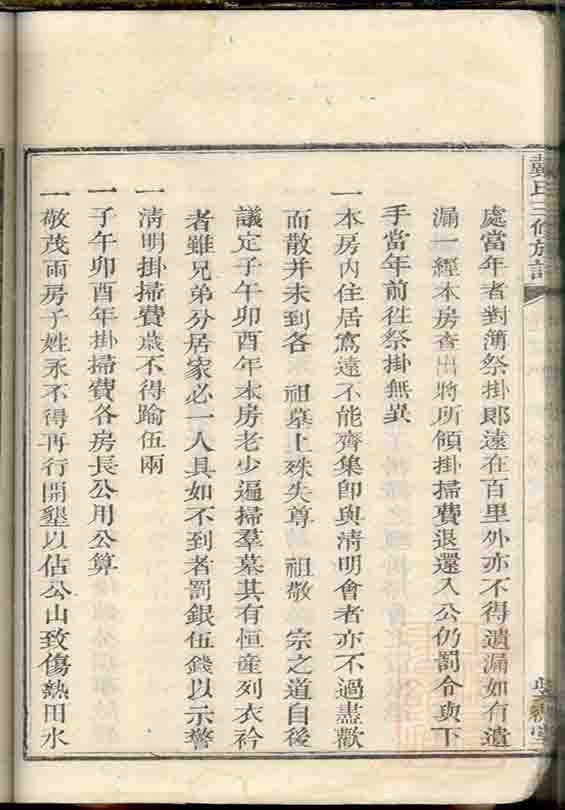 氏三修族譜
處當年者對簿祭掛即遠在百里外亦不得遺漏如有遺
漏一經本房查出將所領掛掃費退還入公仍罰令與下
手當年前徃祭掛無異
一本房內住居窵遠不能齊集即與清明會者亦不過盡歡
而散并未到各 祖墓上殊失尊 祖敬 宗之道自後
議定子午卯酉年本房老少遍掃羣墓其有恒產列衣衿
者雖兄弟分居家必一人具如不到者罰銀伍錢以示警
一清明掛掃費歲不得踰伍兩
一子午卯酉年掛掃費各房長公用公算
一敬茂兩房子姓永不得再行開墾以佔公山致傷熱田水